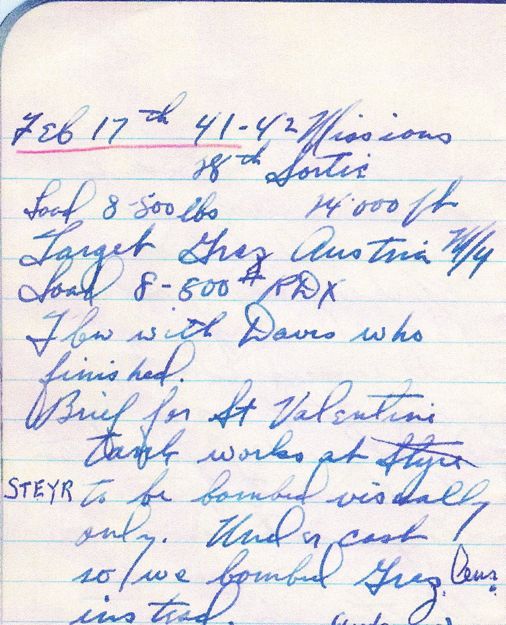 Feb 17th 41-42 Missions
28th Sortie
Load 8-500 lbs 24000 ft
Target Graz Austria M/Y
Load 8-500# RDX
Flew with Davis who
finished.
Brief for St Valentini
tank works at Styre
STEYR to be bombed visually
only. Under cast
so we bombed Graz.
instead.